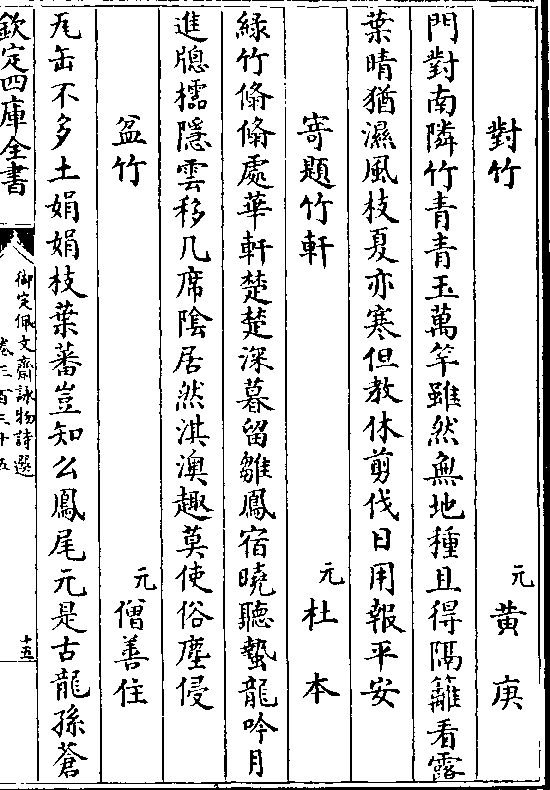 對竹　元　黃庚
門對南隣竹青青玉萬竿雖然無地種且得隔籬看露
葉晴猶濕風枝夏亦寒但教休剪伐日用報平安
寄題竹軒　元　杜本
綠竹翛翛處華軒楚楚深暮留雛鳳宿曉聽蟄龍吟月
進牕櫺隱雲移几席陰居然淇澳趣莫使俗塵侵
盆竹　元　僧善住
瓦缶不多土娟娟枝葉蕃豈知么鳳尾元是古龍孫蒼
欽定四庫全書
御定佩文齋詠物詩選
卷三百三十五
十五